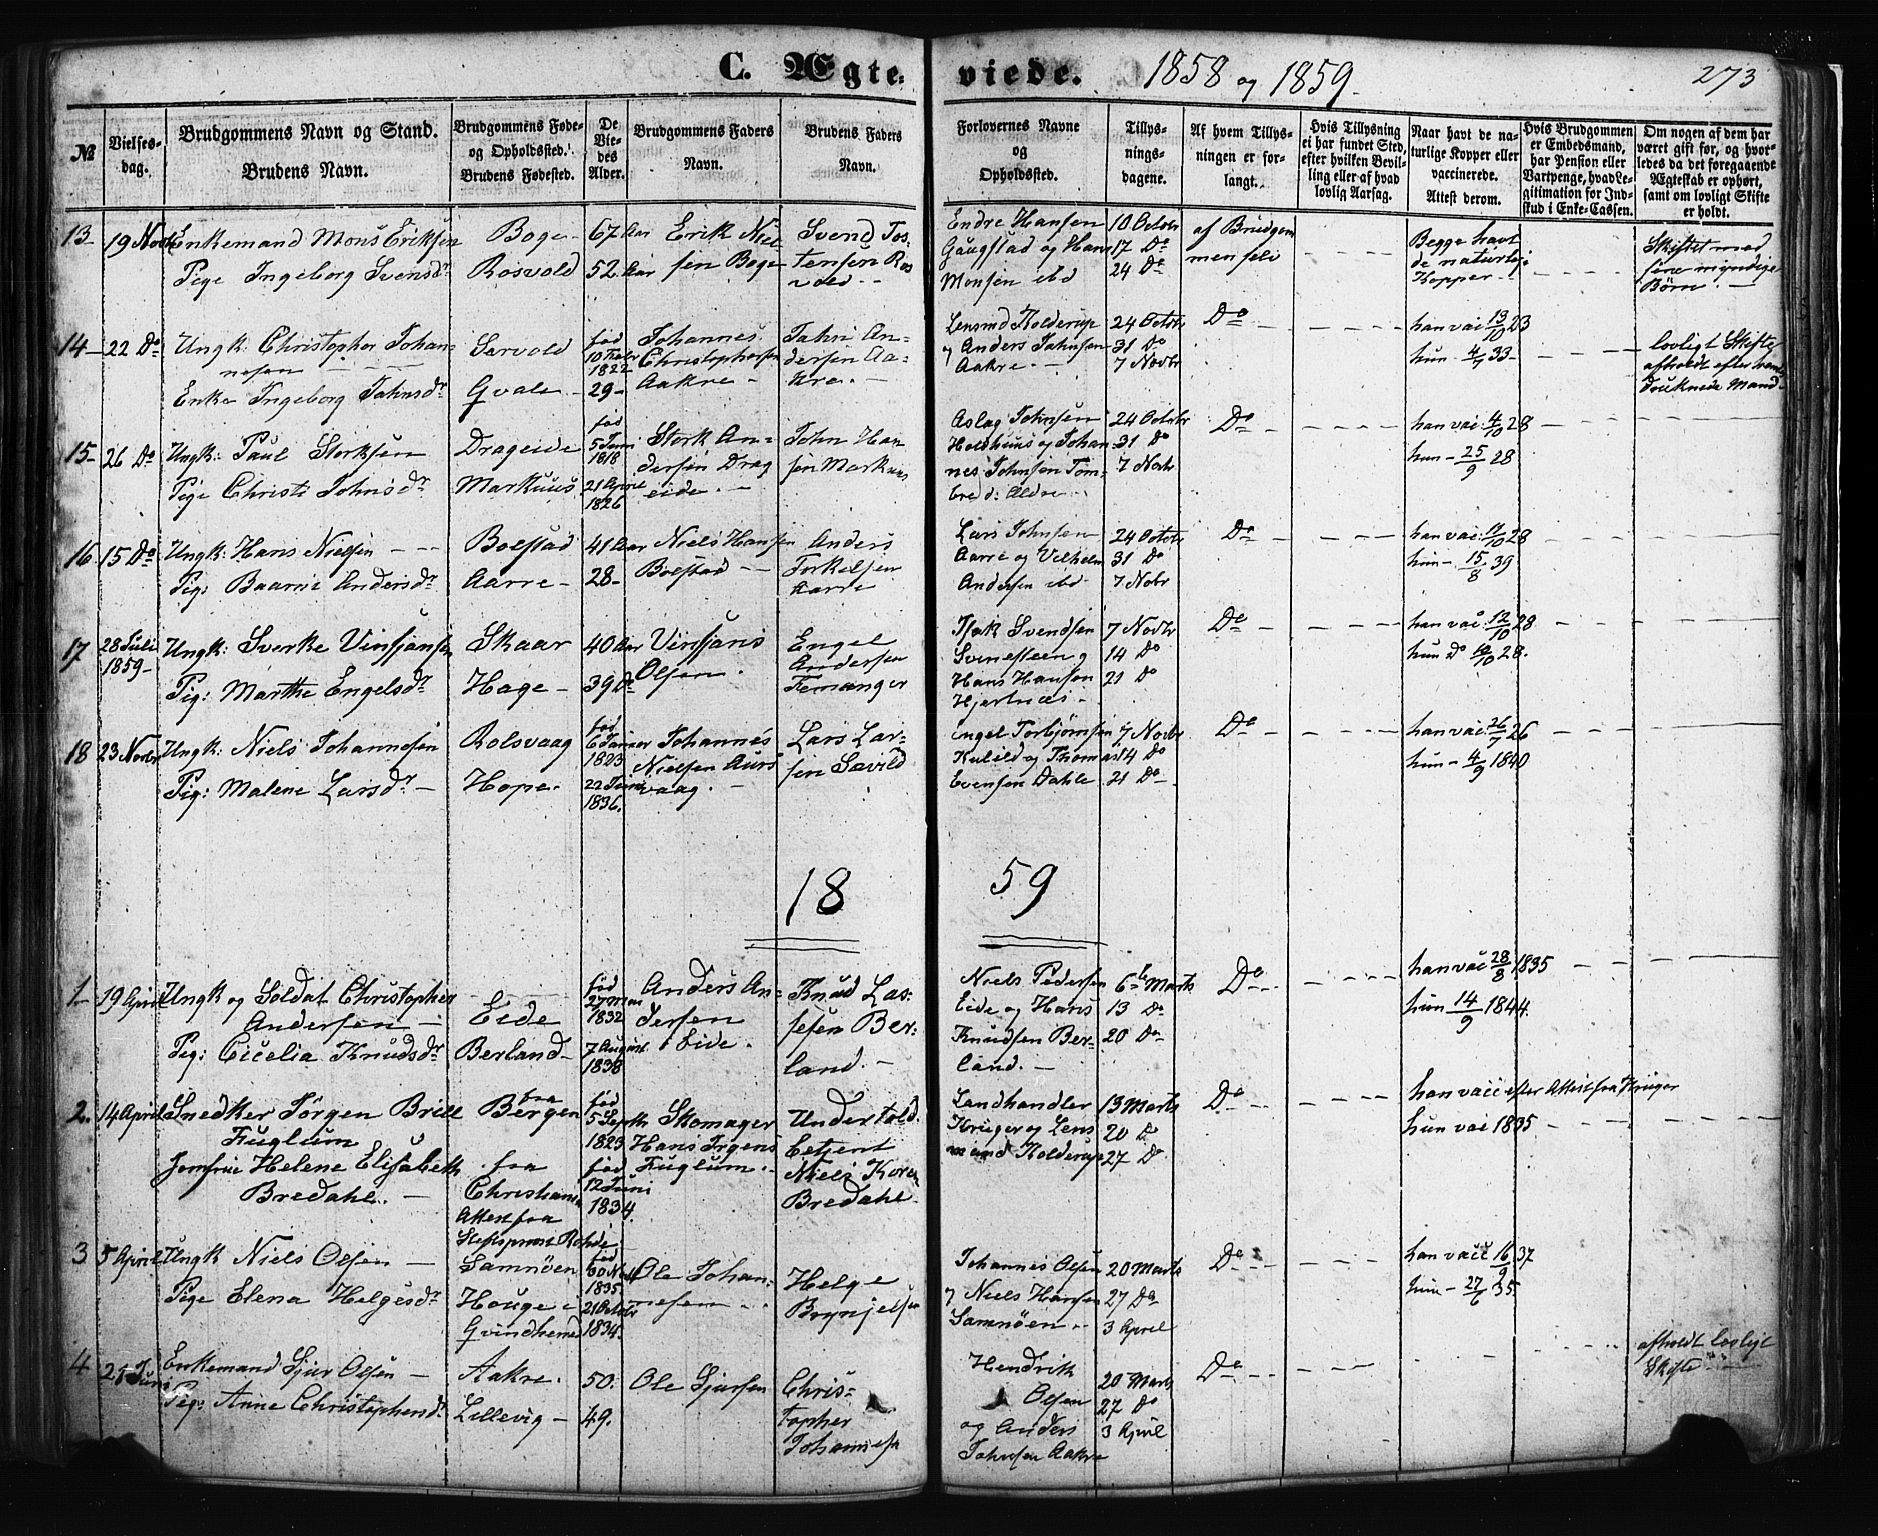 C. Ægte-
viede.
1858 og 1859.
273
№
Vielses-
dag.
Brudgommens Navn og Stand.
Brudens Navn.
Brudgommens Føde-
og Opholdssted.
Brudens Fødested.
De
Vie-
des
Alder.
Brudgommens Faders
Navn.
Brudens Faders
Navn.
Forlovernes Navne
og
Opholdssted.
Tillys-
nings-
dagene.
Af hvem Tillys-
ningen er for-
langt.
Hvis Tillysning
ei har fundet Sted,
efter hvilken Bevil-
ling eller af hvad
lovlig Aarsag.
Naar havt de na-
turlige Kopper eller
vaccinerede.
Attest derom.
Hvis Brudgommen
er Embedsmand,
har Pension eller
Vartpenge, hvad Le-
gitimation for Ind-
skud i Enke-Cassen.
Om nogen af dem har
været gift før, og hvor-
ledes da det foregaaende
Ægteskab er ophørt,
samt om lovligt Skifte
er holdt.
13
19 Novbr
Enkemand Mons Eriksen
Pige Ingeborg Svensdr
Boge
Rosvold
67 Aar
52 Aar
Erik Niel
sen Boge
Svend Tos-
tensen Ros
vold
Endre Hansen
Gaugstad og Hans
Monsen ibd
10 Octobr
17 Do
24 Do
af Brudgom
men selv
Begge havt
de naturlig:
Kopper
Skiftet med
sine myndige
Børn
14
22 Do
Ungk: Christopher Johan-
nesen
Enke Ingeborg Johnsdr
Sørvold
Gvale
fød
10 Febr
1822
29
Johannes
Christophersen
Aakre
John An-
dersen Aa-
kre
Lensmd Rolderup
og Anders Johnsen
Aakre
24 Octobr
31 Do
7 Novbr
Do
han vac 13/10 23
hun 4/9 33
lovligt Skifte
afholdt efter hendes
druknede Mand
15
26 Do
Ungk: Paul Storksen
Pige Christi Johnsdr
Drageide
Markhuus
fød
5 Juni
1818
21 April
1826
Stork An-
dersen Drag
eide
John Han
sen Markhuus
Aslag Johnsen
Holdhuus og Johan
nes Johnsen Tom-
bre d: Aldre
24 Octobr
31 Do
7 Novbr
Do
han vac: 4/10 28
hun 25/9 28
16
15 Do
Ungk: Hans Nielsen
Pig: Baarni Andersdr
Bolstad
Aarre
41 Aar
28
Niels Hansen
Bolstad
Anders
Torkelsen
Aarre
Lars Johnsen
Aarre og Vilhelm
Andersen ibd
24 Octobr
31 Do
7 Novbr
Do
han vac: 4/10 28
hun 15/8 39
17
28 Juli
1859
Ungk: Sverke Vinsjansen
Pig: Marthe Engelsdr
Skaar
Hage
40 Aar
39 Do
Vinsjans
Olsen
Engel
Andersen
Femanger
Isak Svendsen
Svinesteen og
Hans Hansen
Hjertnæs
7 Novbr
14 Do
21 Do
Do
han vac: 12/10 28
hun Do 12/10 28
18
23 Novbr
Ungk: Niels Johannesen
Pig: Malene Larsdr
Rolsvaag
Hope
fød
6 Januar
1823
22 Juni
1836
Johannes
Nielsen Aurs
vaag
Lars Lar-
sen Sævild
Engel Torbjørnsen
Kulild og Thomas
Evensen Dahle
7 Novbr
14 Do
21 Do
Do
han vac: 26/7 26
hun 4/9 1840
18 59
1
19 April
Ungk og Soldat Christopher
Andersen
Pig: Cicelia Knudsdr
Eide
Berland
fød
27 Mai
1832
7 August
1838
Anders An-
dersen
Eide
Knud Las-
sesen Ber-
land
Niels Pedersen
Eide og Hans
Knudsen Ber-
land
6te Marts
13 Do
20 Do
Do
han vac 28/8 1835
hun 14/9 1844
2.
14 April
Snedker Jørgen Brill
Fuglum
Jomfrue Helene Elisabeth
Bredahl
fra
Bergen
fra
Christiania
Attest fra
Stiftsprovst Rohde
fød
5 Septbr
1823
fød
12 Juni
1834
Skomager
Hans Jrgens
Fuglum
Undertold
betjent
Niels Koren
Bredahl
Landhandler
Krüger og Lens
mand Rolderup
13 Marts
20 Do
27 Do
Do
han vacc efter Attest fra Krüger
hun vac 1835
3
5 April
Ungk Niels Olsen
Pige Elena Helgesdr
Samnøen
Houge i
Qvindherred
fød
30 Novbr
1835
21 Octobr
1834.
Ole Johan-
nesen
Helge
Brynjelsen
Johannes Olsen
og Niels Hansen
Samnøen
20 Marts
27 Do
3 April
Do
han vacc 16/9 37
hun 27/6 35
4
21 Juni
Enkemand Sjur Olsen
Pig: Anne Christophersdr
Aakre
Lillevig
50
49.
Ole Sjursen
Chris-
topher
Johannesen
Hendrik
Olsen
og Anders
Johnsen Aakre
20 Marts
27 Do
3 April
Do
afholdt lovligt
Skifte